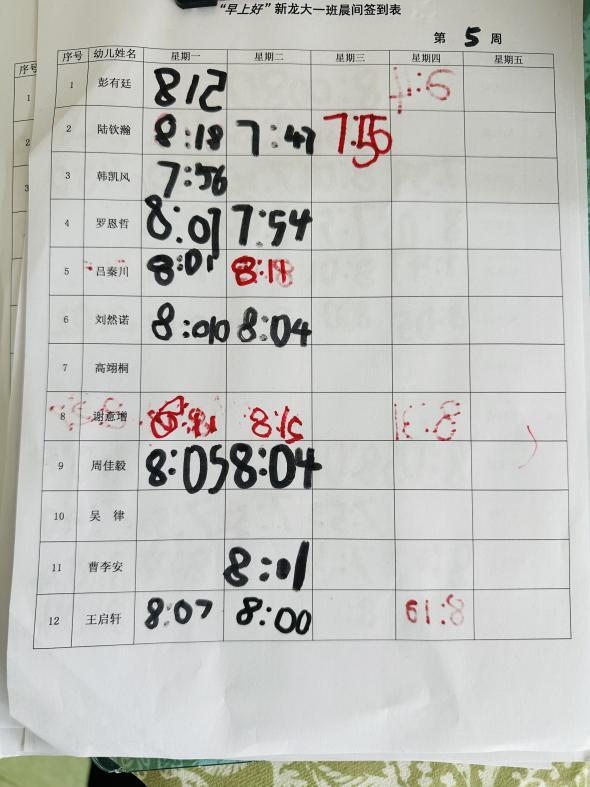 "早上好"新龙大一班晨间签到表
第 5 周
序号 幼儿姓名 星期一 星期二 星期三 星期四 星期五
1 彭有廷 812
2 陆钦瀚 8:18 7:47 7:55
3 韩凯风 7:56
4 罗恩哲 8:07 7:54
5 吕秦川 8:01 8:11
6 刘然诺 8:010 8:04
7 高翊桐
8 谢意增 8:15
9 周佳毅 8:05 8:04
10 吴 律
11 曹李安 8:01
12 王启轩 8:07 8:00
序号
1
2
3